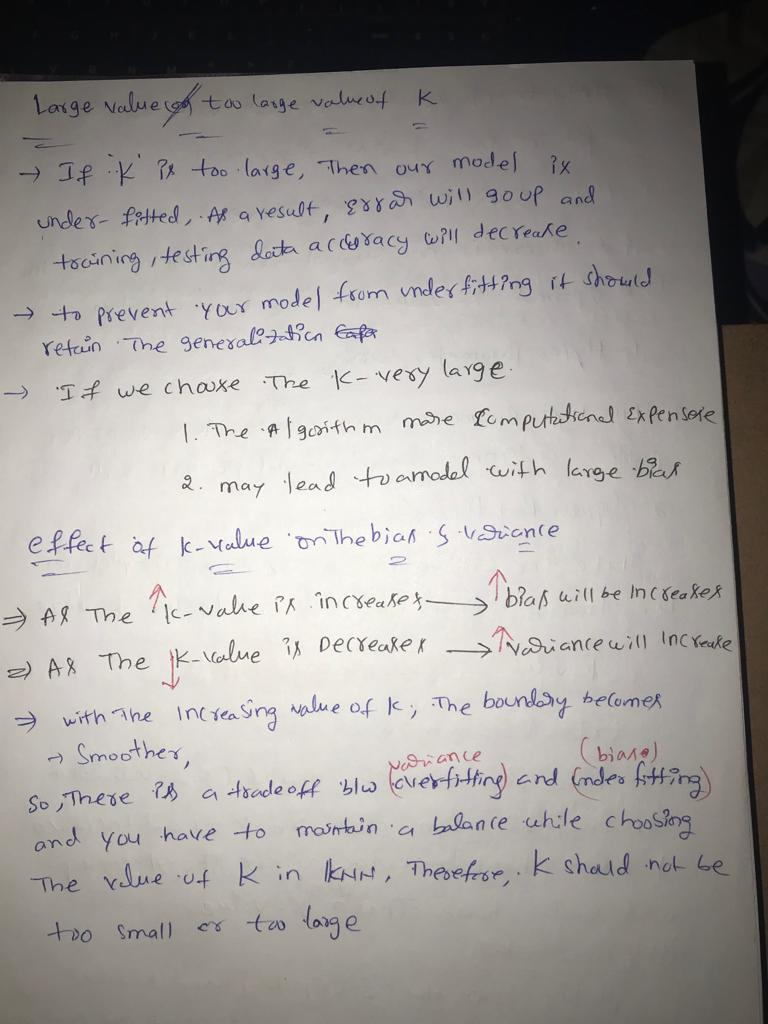 Large value (or) too large value of K
→ If 'K' is too large, Then our model is
under-fitted, As a result, Error will go up and
training, testing data accuracy will decrease.
→ to prevent your model from underfitting it should
retain The generalization
→ If we choose The K-very large.
1. The Algorithm more Computational Expensere
2. may lead to a model with large bias
effect of k-value on The bias & variance
⇒ As The ↑ K-value is increases → ↑ bias will be Increases
⇒ As The ↓ K-value is Decreases → ↑ variance will Increase
⇒ with The Increasing value of k, The boundary becomes
→ Smoother,
variance (biase)
So, There is a tradeoff b/w (overfitting) and (under fitting)
and you have to maintain a balance while choosing
The value of K in KNN, Therefore, K should not be
too small or too large